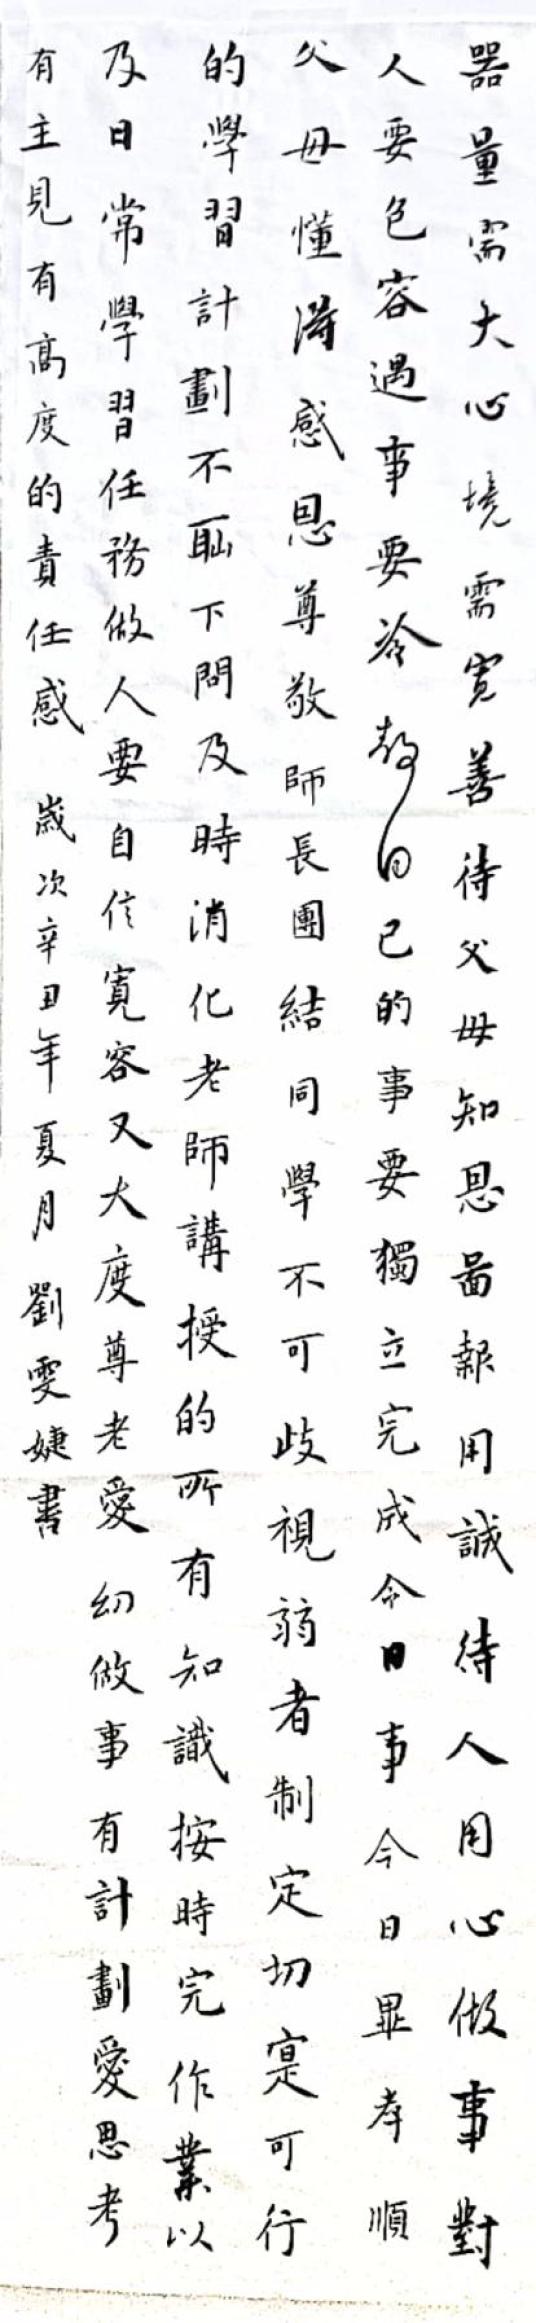 器量需大心境需寬善待父母知恩啚報用誠待人用心做事對
人要包容遇事要冷靜自己的事要獨立完成今日事今日畢孝順
父母懂得感恩尊敬師長團結同學不可歧視弱者制定切寔可行
的學習計劃不恥下問及時消化老師講授的所有知識按時完作業以
及日常學習任務做人要自信寬容又大度尊老愛幼做事有計劃愛思考
有主見有高度的責任感 歲次辛丑年夏月劉雯婕書